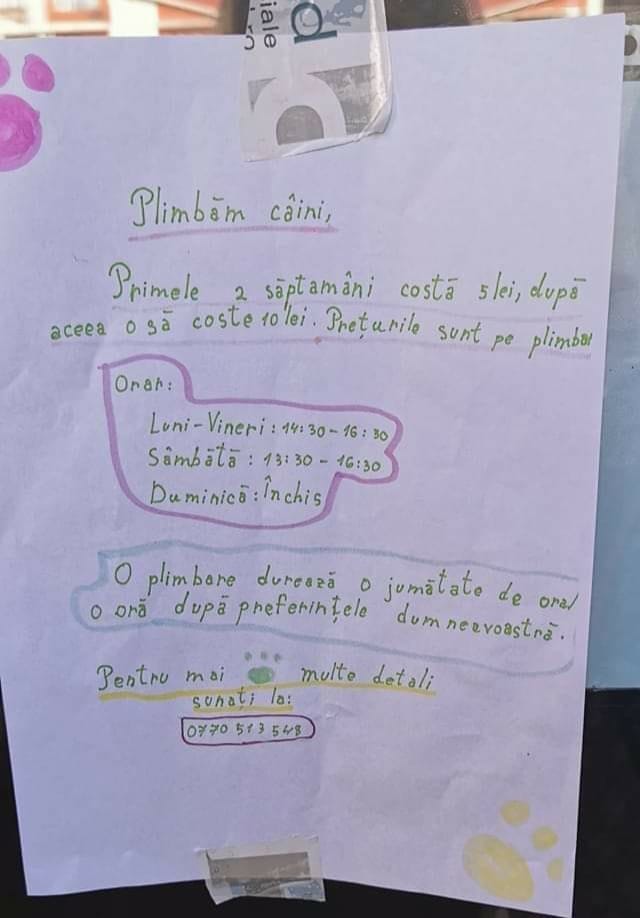 iale
d
Plimbăm câini,
Primele 2 săptamâni costă 5 lei, după
aceea o să coste 10 lei. Prețurile sunt pe plimbar
Orar:
Luni-Vineri: 14:30-16:30
Sâmbătă: 13:30-16:30
Duminică: Închis
O plimbare durează o jumătate de oră/
o oră după preferințele dumneavoastră.
Pentru mai multe detali
sunați la:
0770 513 548